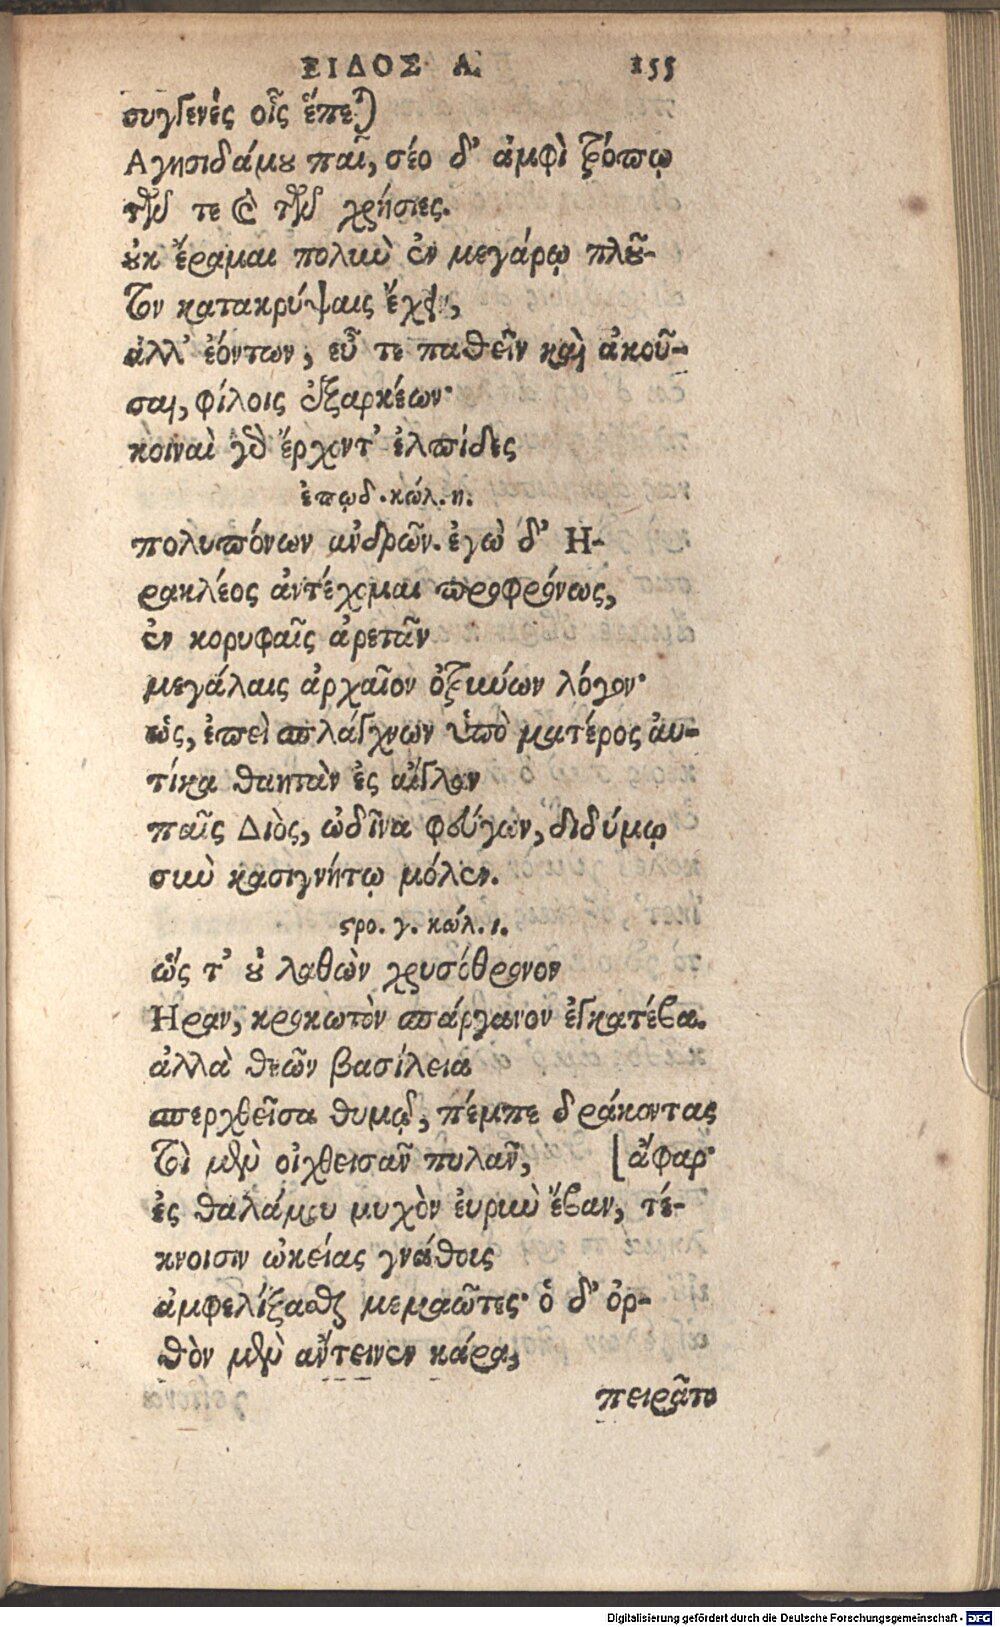 ΕΙΔΟΣ Α. 155
συγγενὲς οἷς ἕπε)
Αγησιδάμου παῖ, σέο δ' ἀμφὶ τρόπῳ
τῶν τε καὶ τῶν χρήσιες.
οὐκ ἔραμαι πολιὺ ἐν μεγάρῳ πλοῦ-
τον κατακρύψαις ἔχειν,
ἀλλ' ἐόντων, εὖ τε παθεῖν καὶ ἀκοῦ-
σαι, φίλοις ἐξαρκέων·
κοιναὶ γὰρ ἔρχοντ' ἐλπίδες
ἐπῳδ. κώλ. η.
πολυπόνων ἀνδρῶν. ἐγὼ δ' Η-
ρακλέος ἀντέχομαι προφρόνως,
ἐν κορυφαῖς ἀρετᾶν
μεγάλαις ἀρχαῖον ὀξιύων λόγον·
ὡς, ἐπεὶ σπλάγχνων ὑπὸ ματέρος ἀυ-
τίκα θαητὰν ἐς αἴγλαν
παῖς Διὸς, ὠδῖνα φεύγων, διδύμῳ
σιὺ κασιγνήτῳ μόλεν.
στρο. γ. κώλ. ι.
ὥς τ' οὐ λαθὼν χρυσόθρονον
Ηραν, κροκωτὸν σπάργανον ἐγκατέβα.
ἀλλὰ θεῶν βασίλεια
σπερχθεῖσα θυμῷ, πέμπε δράκοντας
τοὶ μὲν οἰχθεισᾶν πυλᾶν, [ἄφαρ·
ἐς θαλάμου μυχὸν ἐυριὺ ἔβαν, τέ-
κνοισιν ὠκείας γνάθοις
ἀμφελίξασθαι μεμαῶτες· ὁ δ' ὀρ-
θὸν μὲν ἄντεινεν κάρα,
πειρᾶτο
Digitalisierung gefördert durch die Deutsche Forschungsgemeinschaft - DFG